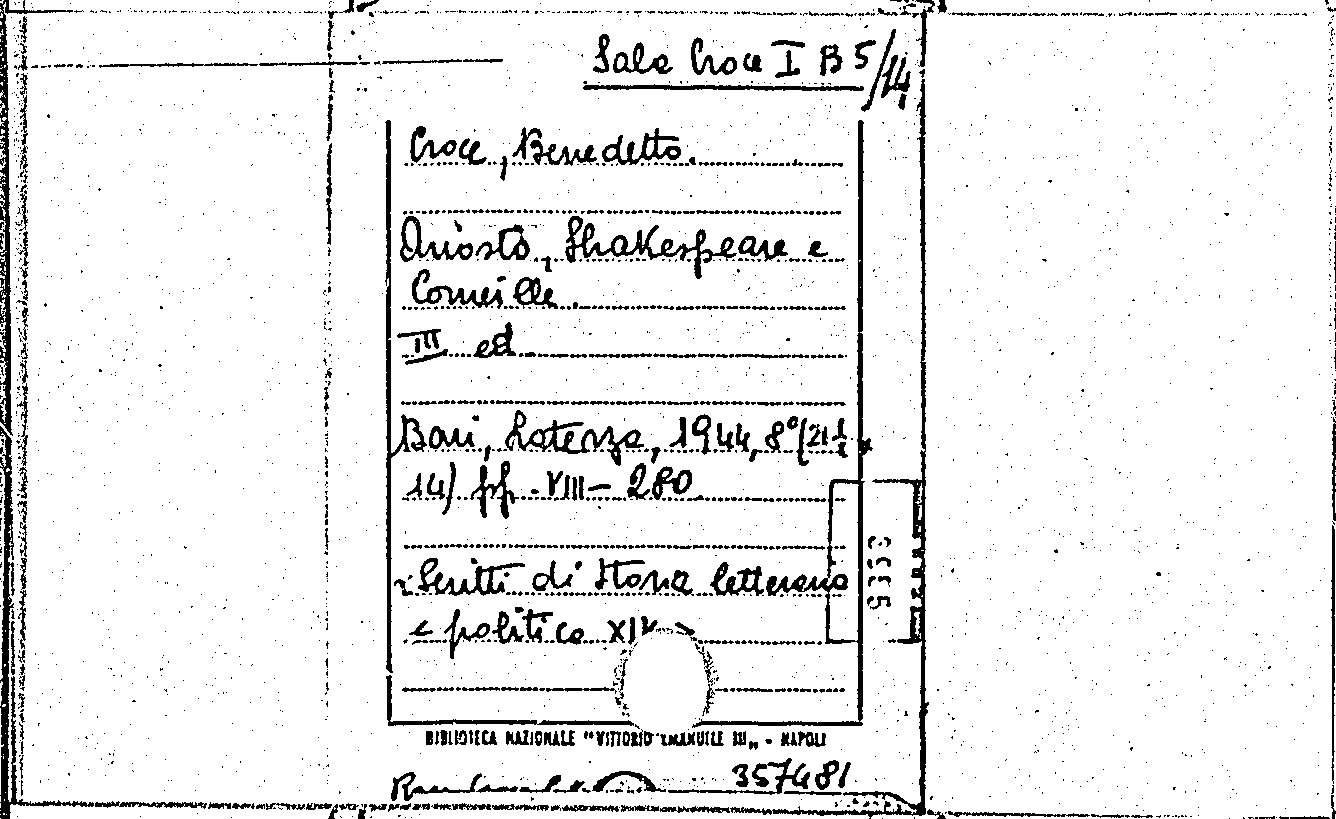 Sala Croce I B 5/14
Croce, Benedetto.
Ariosto, Shakespeare e
Corneille.
III ed.
Bari, Laterza, 1944, 8° (21 ½ x
14) pp. VIII - 280.
Scritti di storia letteraria
e politica XIV >
5333
BIBLIOTECA NAZIONALE "VITTORIO EMANUELE III„ - NAPOLI
357481